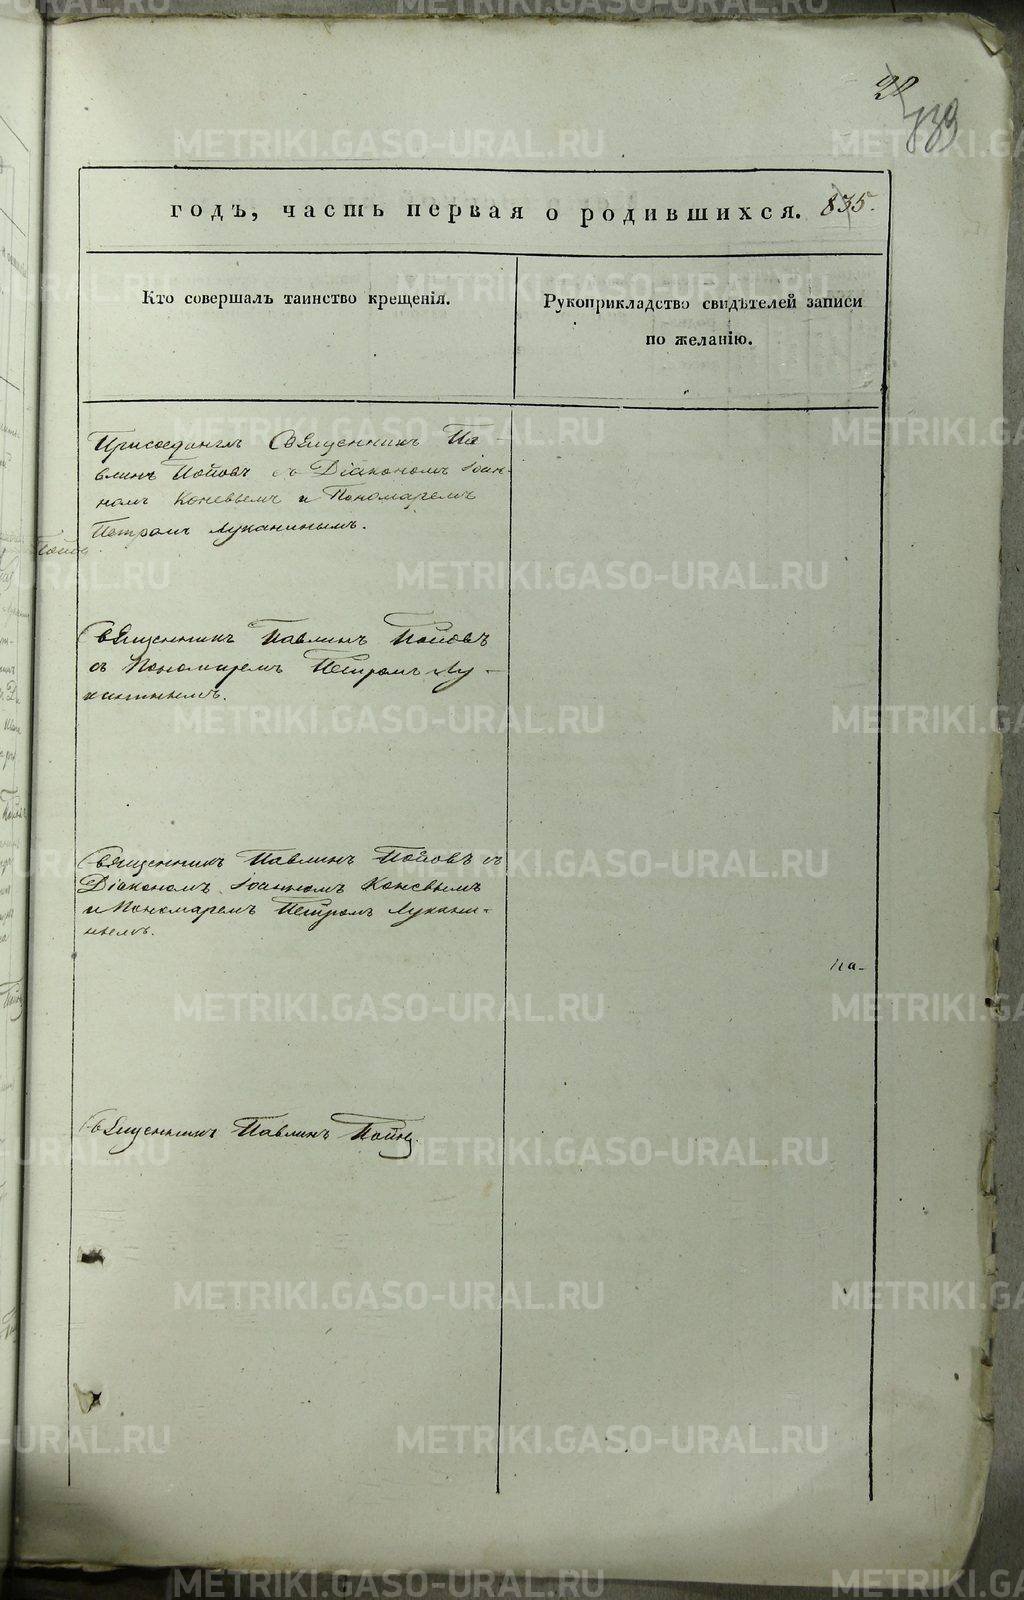 139
годъ, часть первая о родившихся. 835.
Кто совершалъ таинство крещенія.
Рукоприкладство свидѣтелей записи
по желанію.
Присоединилъ Священникъ Па-
влинъ Поповъ съ Діакономъ Іоан-
номъ Коневымъ и Пономаремъ
Петромъ Луканинымъ.
Священникъ Павлинъ Поповъ
съ Пономаремъ Петромъ Лу-
канинымъ.
Священникъ Павлинъ Поповъ съ
Діакономъ Іоанномъ Коневымъ
и Пономаремъ Петромъ Лукани-
нымъ.
на-
Священникъ Павлинъ Поповъ
METRIKI.GASO-URAL.RU